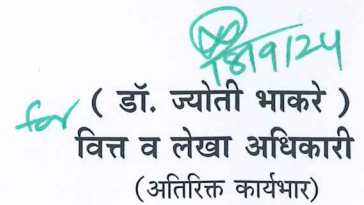 18/9/24
for ( डॉ. ज्योती भाकरे )
वित्त व लेखा अधिकारी
(अतिरिक्त कार्यभार)